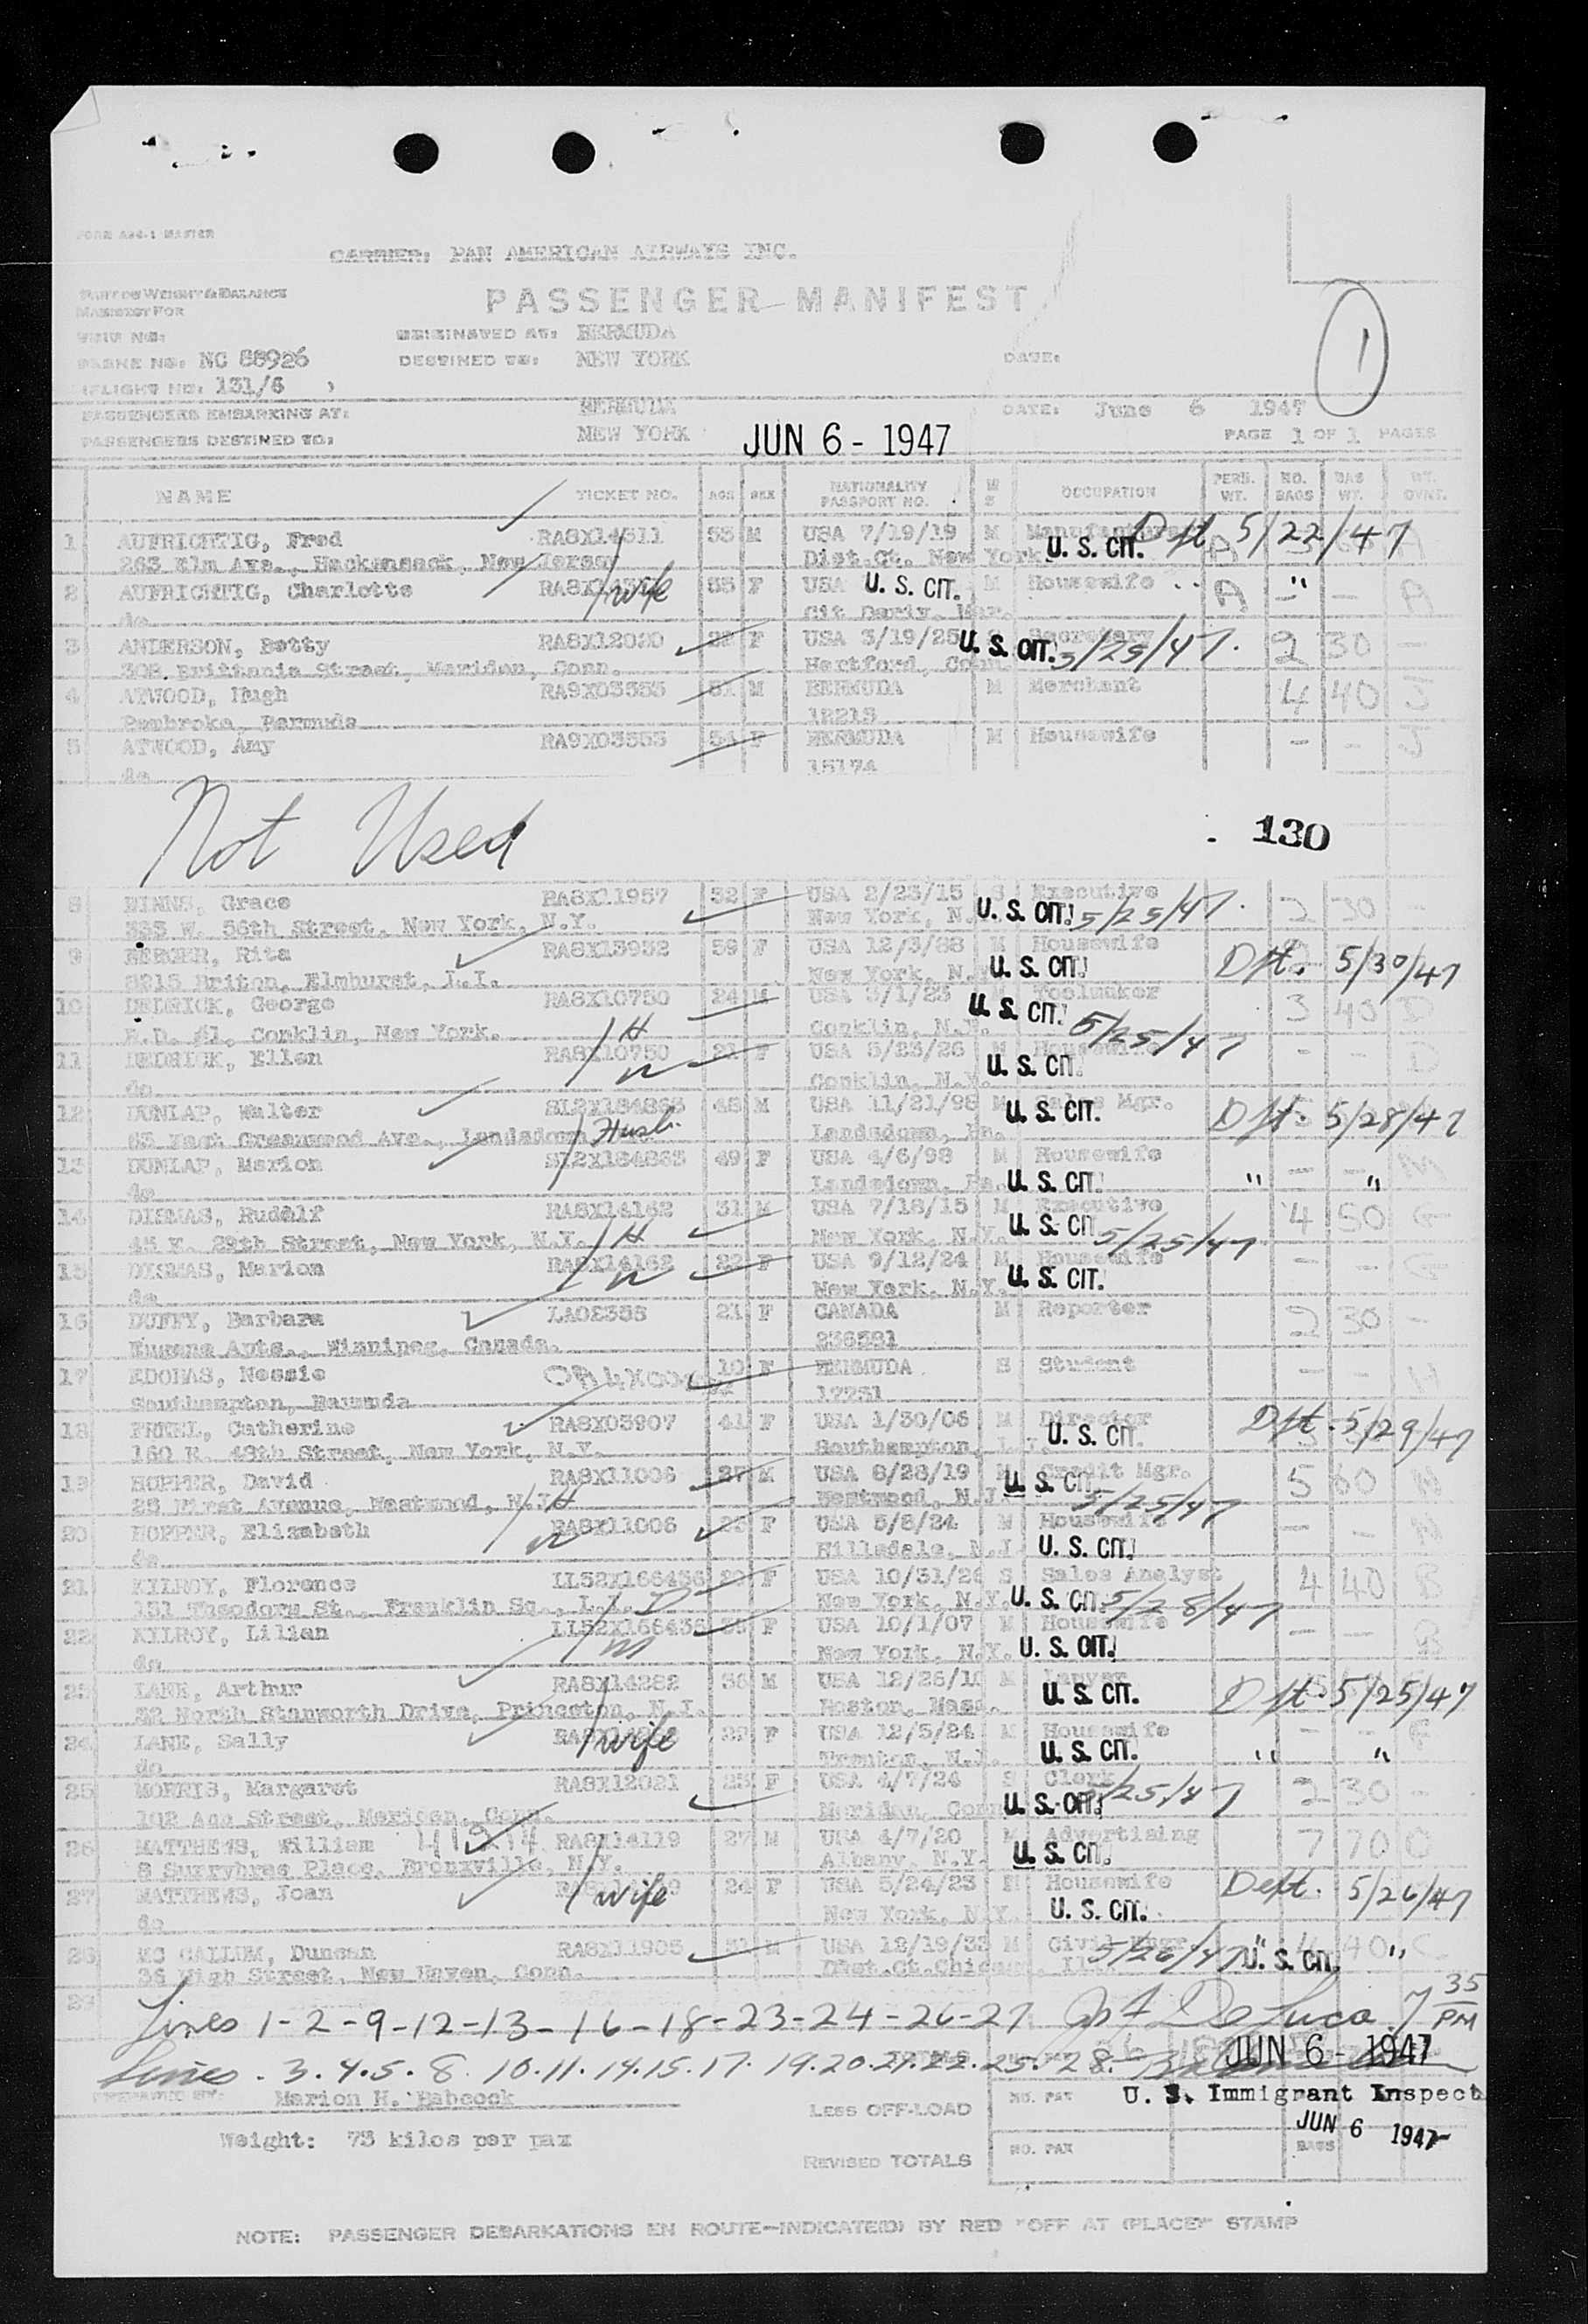 FORM ABC-1 MASTER
CARRIER: PAN AMERICAN AIRWAYS INC.
PART OF WEIGHT & BALANCE
MANIFEST FOR
PASSENGER MANIFEST
TRIP NO:
ORIGINATED AT: BERMUDA
PLANE NO: NC 88926
DESTINED TO: NEW YORK
DATE:
1
(FLIGHT NO: 131/6 )
PASSENGERS EMBARKING AT: BERMUDA
DATE: June 6 1947
PASSENGERS DESTINED TO: NEW YORK
JUN 6 - 1947
PAGE 1 OF 1 PAGES
NAME TICKET NO. AGE SEX NATIONALITY PASSPORT NO. M S OCCUPATION PERS. WT. NO. BAGS BAG WT. WT. GVNT.
1 AUFRICHTIG, Fred RA8X14511 55 M USA 7/19/19 M U. S. CIT. 5/22/47
263 Elm Ave., Hackensack, New Jersey Dist.Ct. New York
2 AUFRICHTIG, Charlotte wife 55 F USA U. S. CIT. M Housewife A " — A
do Cit Deriv. Mar.
3 ANDERSON, Betty RA8X12020 F USA 3/19/25 U. S. CIT. Secretary 5/25/47. 2 30 —
308 Brittania Street, Meriden, Conn. Hartford, Conn.
4 ATWOOD, Hugh RA9X03553 51 M BERMUDA M Merchant 4 40 J
Pembroke, Bermuda 12213
5 ATWOOD, Amy RA9X03553 54 F BERMUDA M Housewife — — J
do 15174
Not Used
130
8 BINNS, Grace RA8X11957 32 F USA 2/23/15 S Executive U. S. CIT. 5/25/47. 2 30 —
335 W. 56th Street, New York, N.Y. New York, N.
9 BERGER, Rita RA8X13952 59 F USA 12/3/88 M Housewife U. S. CIT. 5/30/47
8215 Briton, Elmhurst, L.I. New York, N.
10 DEDRICK, George RA8X10750 24 M USA 3/1/23 M Toolmaker U. S. CIT. 5/25/47 3 D
R.D. #1, Conklin, New York. H Conklin, N.Y.
11 DEDRICK, Ellen RA8X10750 21 F USA 5/23/26 M Housewife U. S. CIT. — — D
do W Conklin, N.Y.
12 DUNLAP, Walter SI2X184863 48 M USA 11/21/98 M Sales Mgr. U. S. CIT. 5/28/47
65 East Greenwood Ave., Landsdown Husb. Landsdown, Pa.
13 DUNLAP, Marion SI2X184863 49 F USA 4/6/98 M Housewife U. S. CIT. " — — " M
do Landsdown, Pa.
14 DISMAS, Rudolf RA8X14162 31 M USA 7/18/15 M Executive U. S. CIT 5/25/47 4 50 G
45 E. 29th Street, New York, N.Y. H New York, N.Y.
15 DISMAS, Marion RA8X14162 22 F USA 9/12/24 M Housewife U. S. CIT. — — G
do W New York, N.Y.
16 DUFFY, Barbara LA02355 21 F CANADA M Reporter 2 30 —
Eugene Apts., Winnipeg, Canada. 236581
17 Nessie 10 F BERMUDA S Student — — H
Southampton, Bermuda 12231
18 Catherine RA8X03907 41 F USA 1/30/06 M Director U. S. CIT. 5/29/47
160 E. 48th Street, New York, N.Y. Southampton,
19 HOPPER, David RA8X11006 27 M USA 8/28/19 M Credit Mgr. U. S. CIT. 5/25/47 5 60 N
25 First Avenue, Westwood, N.J. H Westwood, N.J.
20 HOPPER, Elizabeth RA8X11006 F USA 5/8/24 M Housewife U. S. CIT. — — N
do W Hillsdale, N.J.
21 KILROY, Florence LL52X166436 F USA 10/31/26 S Sales Analyst 4 40 B
131 Theodora St., Franklin Sq., L.I. D New York, N.Y. U. S. CIT. 5/28/47
22 KILROY, Lilian LL52X166436 F USA 10/1/07 M Housewife — — B
do M New York, N.Y. U. S. CIT.
23 LANE, Arthur RA8X14282 36 M USA 12/26/10 M Lawyer U. S. CIT. 5/25/47
32 North Stanworth Drive, Princeton, N.J. Boston, Mass.
24 LANE, Sally wife 22 F USA 12/5/24 M Housewife U. S. CIT. " "
do Trenton, N.J.
25 MORRIS, Margaret RA8X12021 23 F USA 4/7/24 S Clerk 5/25/47 2 30 —
102 Ann Street, Meriden, Conn. Meriden, Conn U. S. CIT.
26 MATTHEWS, William RA8X14119 27 M USA 4/7/20 M Advertising 7 70 O
8 Sunnybrae Place, Bronxville, N.Y. Albany, N.Y. U. S. CIT.
27 MATTHEWS, Joan wife 24 F USA 5/24/23 M Housewife Dept. 5/26/47
do New York, N.Y. U. S. CIT.
28 MC CALLUM, Duncan RA8X11905 M USA 12/19/33 M Civil Engr. 5/26/47 U. S. CIT. 4 40 " C
36 High Street, New Haven, Conn. Dist.Ct.Chicago, Ill.
29
Lines 1-2-9-12-13-16-18-23-24-26-27 De Luca 7 35 PM
TOTALS JUN 6 - 1947
Lines . 3.4.5. 8. 10.11. 14.15. 17. 19.20.21.22. 25. 28.
PREPARED BY: Marion H. Babcock
LESS OFF-LOAD NO. PAX U. S. Immigrant Inspect
JUN 6 1947
Weight: 73 kilos per pax
REVISED TOTALS NO. PAX BAGS
NOTE: PASSENGER DEBARKATIONS EN ROUTE—INDICATE(D) BY RED "OFF AT (PLACE)" STAMP